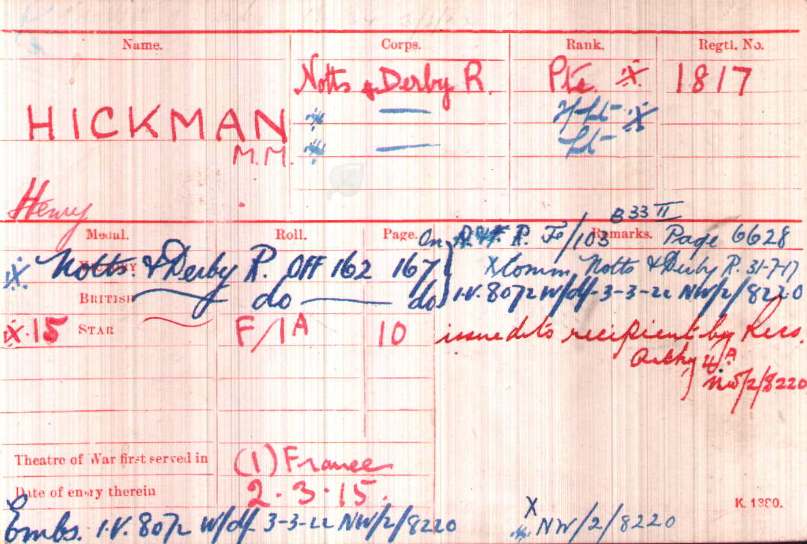 Name. Corps. Rank. Regtl. No.
HICKMAN Notts & Derby R. Pte. 1817
M.M.
Henry
B 33 II
Medal. Roll. Page. On R. Fe/103 Remarks. Page 6628
Notts. & Derby R. Off 162 167 X Comm, Notts & Derby R. 31-7-17
BRITISH do do I.V. 8072 W/df-3-3-22 NW/2/8220
15 STAR F/1A 10 issued to recipient by Recs.
NW/2/8220
Theatre of War first served in (1) France
Date of entry therein 2.3.15. K. 1380.
Embs. I.V. 8072 W/df 3-3-22 NW/2/8220 X NW/2/8220